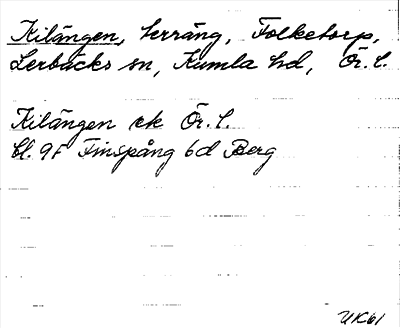 Kilängen, terräng, Folketorp,
Lerbäcks sn, Kumla hd, Ör. l.
Kilängen ek Ör. l.
bl. 9F Finspång 6d Berg
UK61